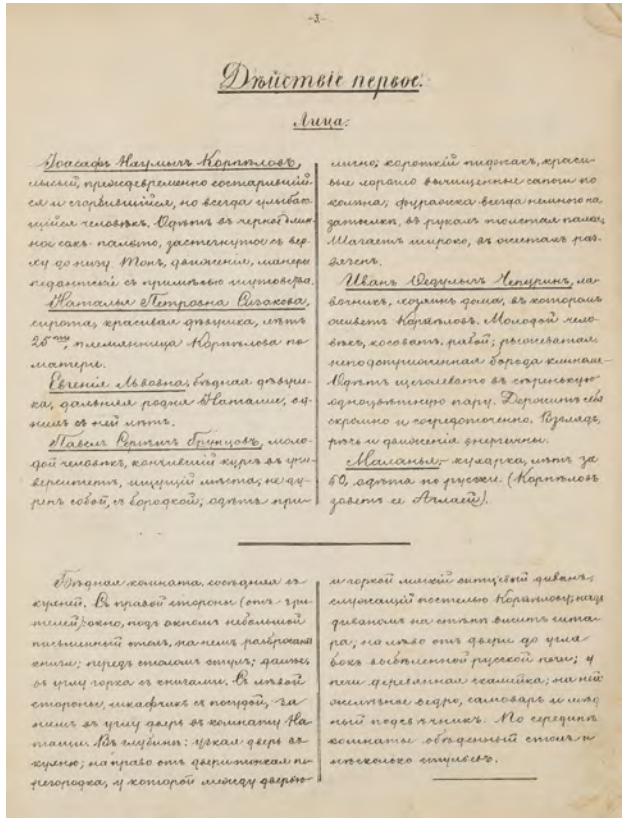 -3-
Дѣйствіе первое.
Лица:
Іоасафъ Наумычъ Корпѣловъ,
лысый, преждевременно состарившій-
ся и сгорбившійся, но всегда улыбаю-
щійся человѣкъ. Одѣтъ въ черное длин-
ное сакъ-пальто, застегнутое съ вер-
ху до низу. Тонъ, движенія, манеры
педантскія съ примѣсью шутовства.
Наталья Петровна Сизакова,
сирота, красивая дѣвушка, лѣтъ
25ти, племянница Корпѣлова по
матери.
Евгенія Львовна, бѣдная дѣвуш-
ка, дальняя родня Наташѣ, од-
нихъ съ ней лѣтъ.
Павелъ Сергѣичъ Грунцовъ, моло-
дой человѣкъ, кончившій курсъ въ уни-
верситетѣ, ищущій мѣста; не ду-
ренъ собой, съ бородкой; одѣтъ при-
лично; короткій пиджакъ, краси-
вые хорошо вычищенные сапоги по
колѣна; фуражка всегда немного на
затылкѣ, въ рукахъ толстая палка;
Шагаетъ широко, въ жестахъ раз-
вязенъ.
Иванъ Ѳедулычъ Чепуринъ, ла-
вочникъ, хозяинъ дома, въ которомъ
живетъ Корпѣловъ. Молодой чело-
вѣкъ, косоватъ, рябой; рыжеватая
неподстриженная борода клиномъ.
Одѣтъ щеголевато въ сѣренькую
одноцвѣтную пару. Держитъ себя
скромно и сосредоточенно. Взглядъ,
рѣчь и движенія энергичны.
Маланья, кухарка, лѣтъ за
40, одѣта по русски. (Корпѣловъ
зоветъ ее Аглаей).
Бѣдная комната, сосѣдняя съ
кухней. Съ правой стороны (отъ зри-
телей) окно, подъ окномъ небольшой
письменный столъ, на немъ разбросаны
книги; передъ столомъ стулъ; далѣе,
въ углу горка съ книгами. Съ лѣвой
стороны, шкафчикъ съ посудой, за
нимъ въ углу дверь въ комнату На-
таши. Въ глубинѣ: узкая дверь въ
кухню; на право отъ двери тонкая пе-
регородка, у которой между дверью
и горкой мягкій ситцевый диванъ,
служащій постелью Корпѣлову; надъ
диваномъ на стѣнѣ виситъ гита-
ра; на лѣво отъ двери до угла
бокъ выбѣленной русской печи; у
печи деревянная скамейка; на ней
желѣзное ведро, самоваръ и мѣд
ный подсвѣчникъ. По серединѣ
комнаты обѣденный столъ и
нѣсколько стульевъ.